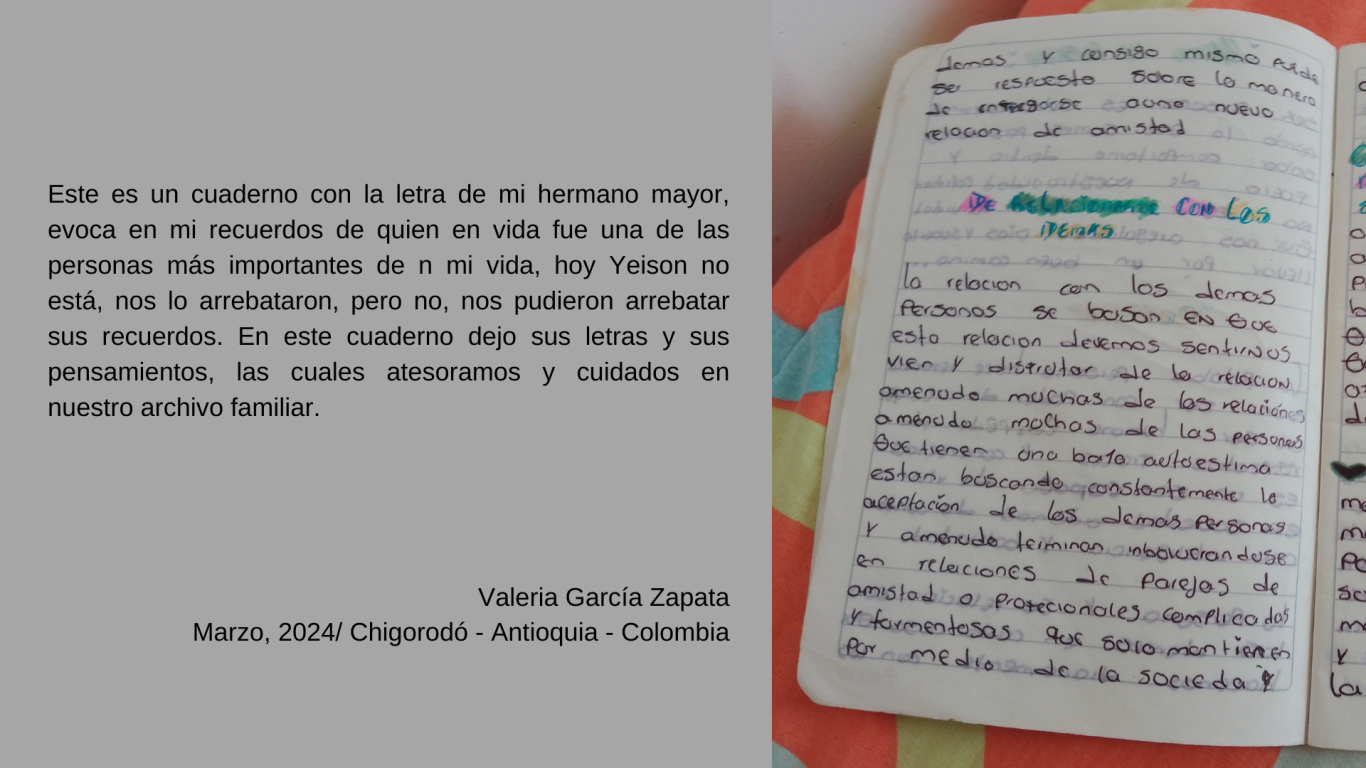 Este es un cuaderno con la letra de mi hermano mayor,
evoca en mi recuerdos de quien en vida fue una de las
personas más importantes de n mi vida, hoy Yeison no
está, nos lo arrebataron, pero no, nos pudieron arrebatar
sus recuerdos. En este cuaderno dejo sus letras y sus
pensamientos, las cuales atesoramos y cuidados en
nuestro archivo familiar.
Valeria García Zapata
Marzo, 2024/ Chigorodó - Antioquia - Colombia
demas y consigo mismo puede
ser respuesto sobre la manera
de entregarse auna nueva
relacion de amistad
DE Relacionarse CON LOS
DEMAS
la relacion con los demas
Personas se bason EN QUE
esta relacion devemos sentirNOS
vien y disfrutar de la relacion
amenudo muchas de las relaciones
amenudo muchas de las personas
que tienen una baja autoestima
estan buscando constantemente la
aceptación de los demas personas
y amenudo terminan inbowcrandose
en relaciones de parejas de
amistad o profecionales complicados
y tormentosas que solo mantienen
por medio de la socieda y